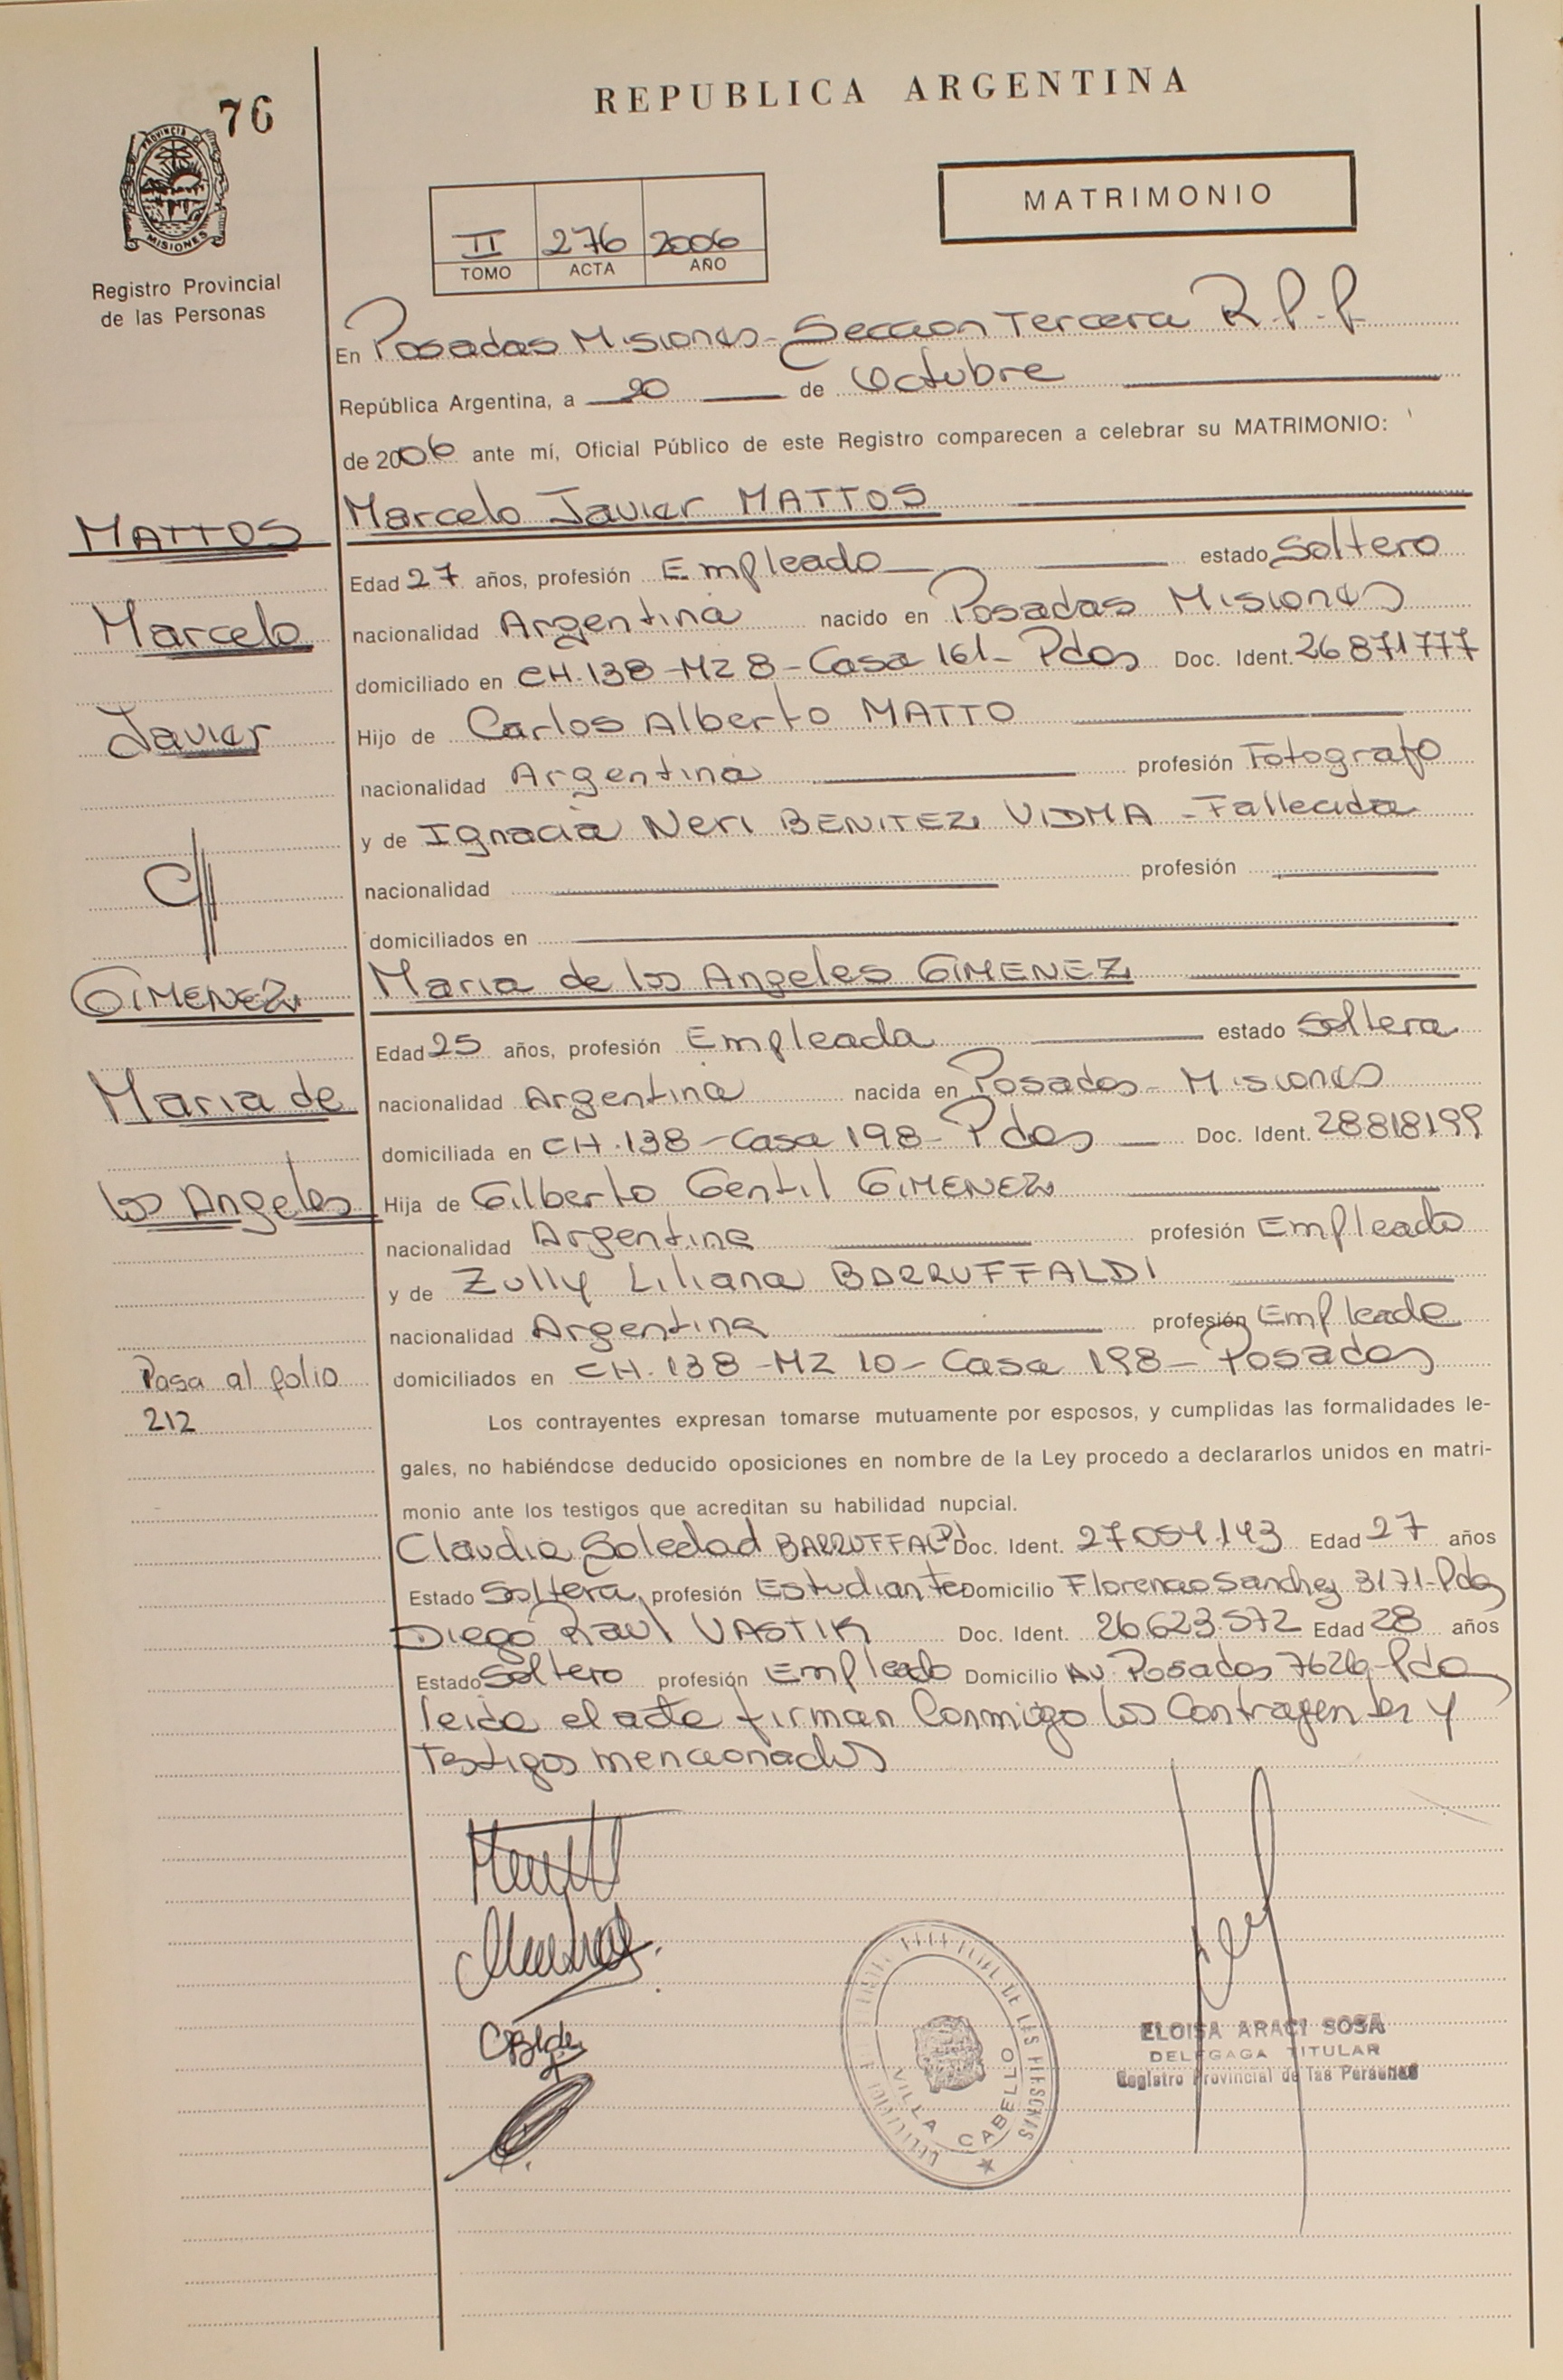 76
REPUBLICA ARGENTINA
PROVINCIA DE
MISIONES
MATRIMONIO
II 276 2006
TOMO ACTA AÑO
Registro Provincial
de las Personas
En Posadas Misiones - Seccion Tercera R.P.P.
República Argentina, a 20 de Octubre
de 2006 ante mí, Oficial Público de este Registro comparecen a celebrar su MATRIMONIO:
MATTOS
Marcelo Javier MATTOS
Edad 27 años, profesión Empleado estado Soltero
Marcelo
nacionalidad Argentina nacido en Posadas Misiones
domiciliado en CH.138-MZ 8-Casa 161- Pdas Doc. Ident. 26871777
Javier
Hijo de Carlos Alberto MATTO
nacionalidad Argentina profesión Fotografo
y de Ignacia Neri BENITEZ VIDMA - Fallecida
C//
nacionalidad profesión
domiciliados en
GIMENEZ
Maria de los Angeles GIMENEZ
Edad 25 años, profesión Empleada estado Soltera
Maria de
nacionalidad Argentina nacida en Posadas - Misiones
domiciliada en CH.138-Casa 198- Pdas Doc. Ident. 28818199
los Angeles
Hija de Gilberto Gentil GIMENEZ
nacionalidad Argentina profesión Empleado
y de Zully Liliana BARRUFFALDI
nacionalidad Argentina profesión Empleada
Pasa al folio
212
domiciliados en CH.138-MZ 10- Casa 198- Posadas
Los contrayentes expresan tomarse mutuamente por esposos, y cumplidas las formalidades le-
gales, no habiéndose deducido oposiciones en nombre de la Ley procedo a declararlos unidos en matri-
monio ante los testigos que acreditan su habilidad nupcial.
Claudia Soledad BARRUFFALDI Doc. Ident. 27.054.143 Edad 27 años
Estado Soltera profesión Estudiante Domicilio Florencio Sanchez 3171-Pdas
Diego Raul VASTIK Doc. Ident. 26.623.572 Edad 28 años
Estado Soltero profesión Empleado Domicilio Av. Posadas 7626-Pdas
leida el acta firman Conmigo los Contrayentes y
Testigos mencionados
VILLA CABELLO
ELOISA ARACI SOSA
DELEGAGA TITULAR
Registro Provincial de las Personas